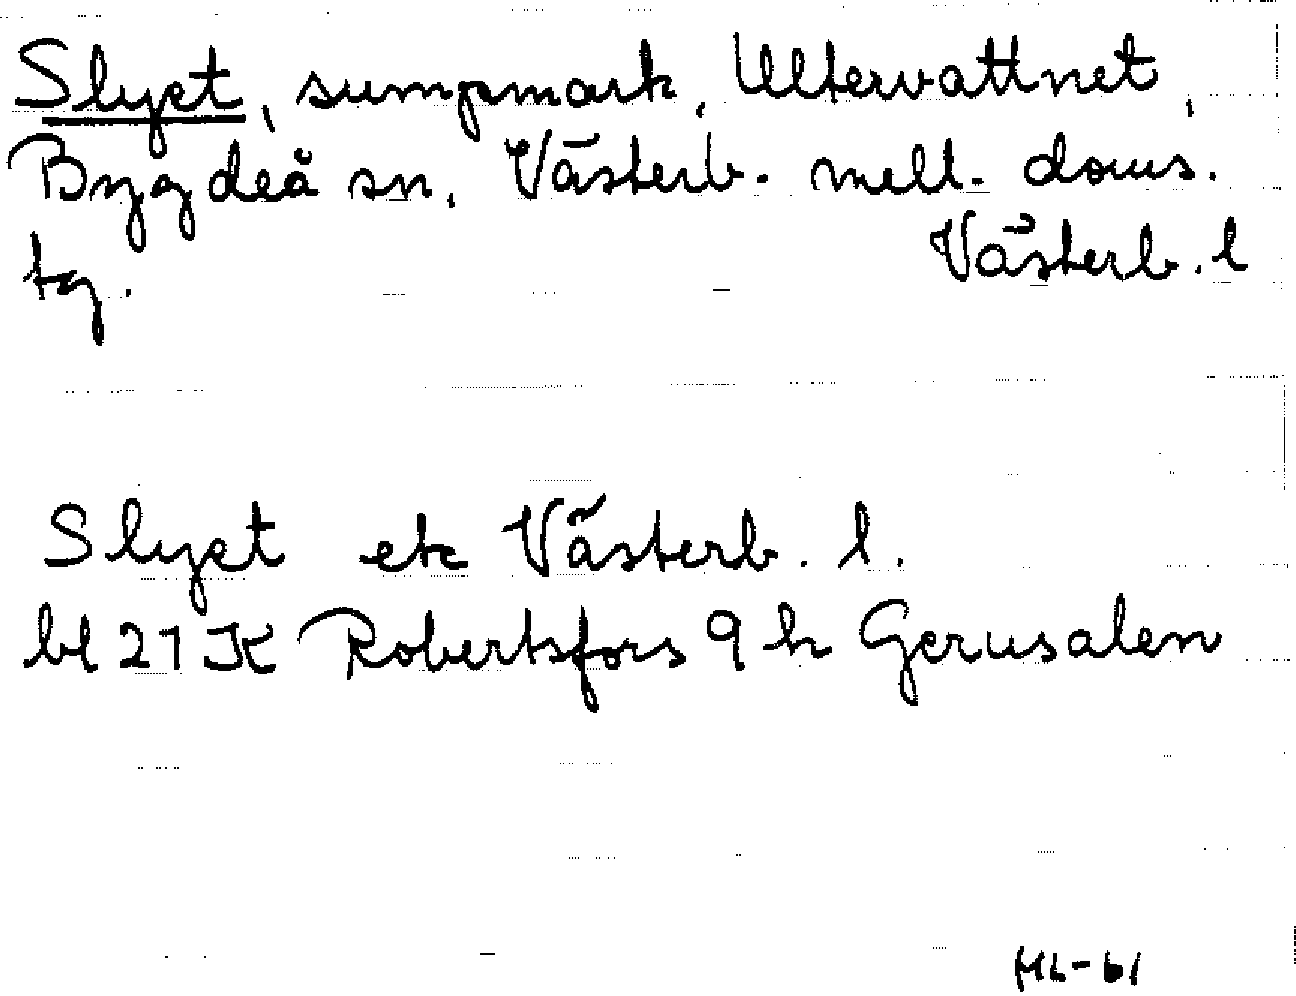 Slyet, sumpmark, Ultervattnet,
Bygdeå sn, Västerb. mell. doms.
tg. Västerb. l
Slyet ek Västerb. l.
bl 21 K Robertsfors 9 h Gerusalen
HL-61